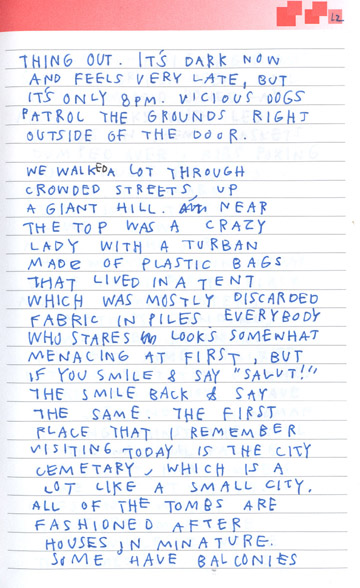 12
THING OUT. IT'S DARK NOW
AND FEELS VERY LATE, BUT
IT'S ONLY 8PM. VICIOUS DOGS
PATROL THE GROUNDS RIGHT
OUTSIDE OF THE DOOR.
WE WALKED A LOT THROUGH
CROWDED STREETS, UP
A GIANT HILL. NEAR
THE TOP WAS A CRAZY
LADY WITH A TURBAN
MADE OF PLASTIC BAGS
THAT LIVED IN A TENT
WHICH WAS MOSTLY DISCARDED
FABRIC IN PILES EVERYBODY
WHO STARES LOOKS SOMEWHAT
MENACING AT FIRST, BUT
IF YOU SMILE & SAY "SALUT!"
THE SMILE BACK & SAY
THE SAME. THE FIRST
PLACE THAT I REMEMBER
VISITING TODAY IS THE CITY
CEMETARY, WHICH IS A
LOT LIKE A SMALL CITY.
ALL OF THE TOMBS ARE
FASHIONED AFTER
HOUSES IN MINATURE.
SOME HAVE BALCONIES